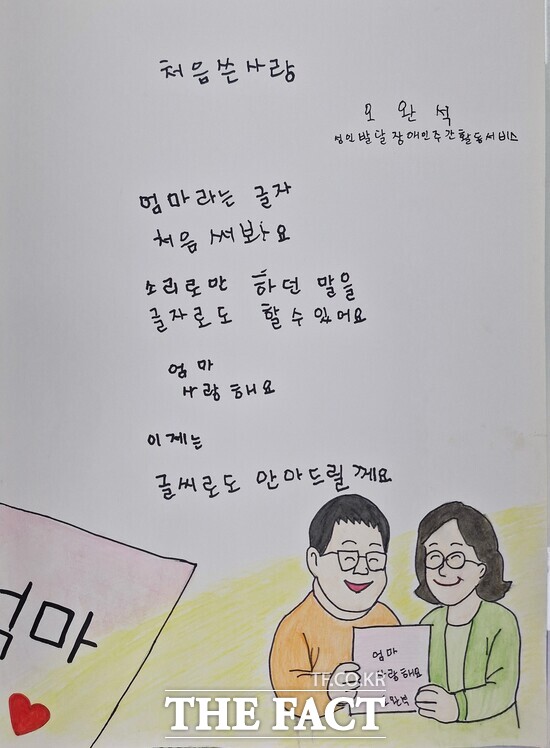 처음 쓴 사랑
오완석
성인발달장애인주간활동서비스
엄마라는 글자
처음 써봐요
소리로만 하던 말을
글자로도 할 수 있어요
엄마
사랑해요
이제는
글씨로도 안아드릴께요
엄마
엄마
사랑해요
TF.CO.KR
THE FACT